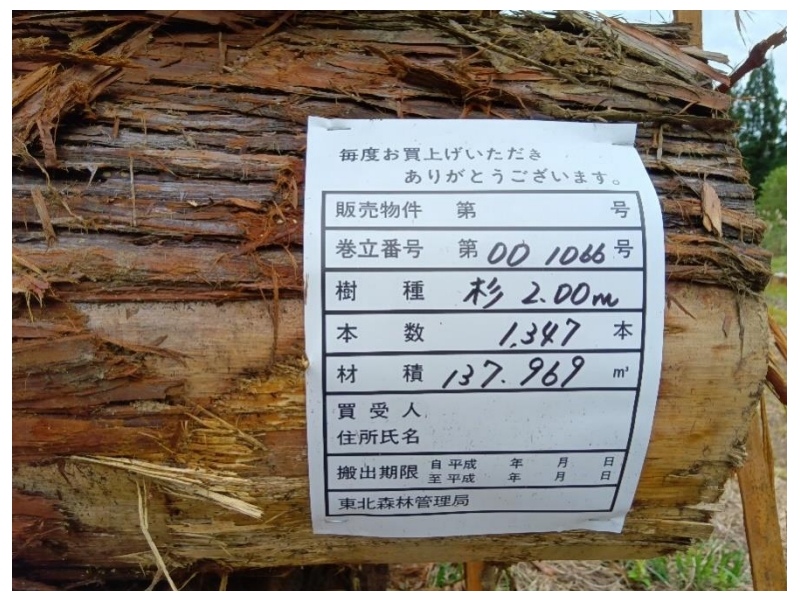 毎度お買上げいただき
ありがとうございます。
販売物件 第 号
巻立番号 第 00 1066 号
樹 種 杉 2.00m
本 数 1,347 本
材 積 137.969 m³
買受人
住所氏名
搬出期限 自 平成 年 月 日
至 平成 年 月 日
東北森林管理局